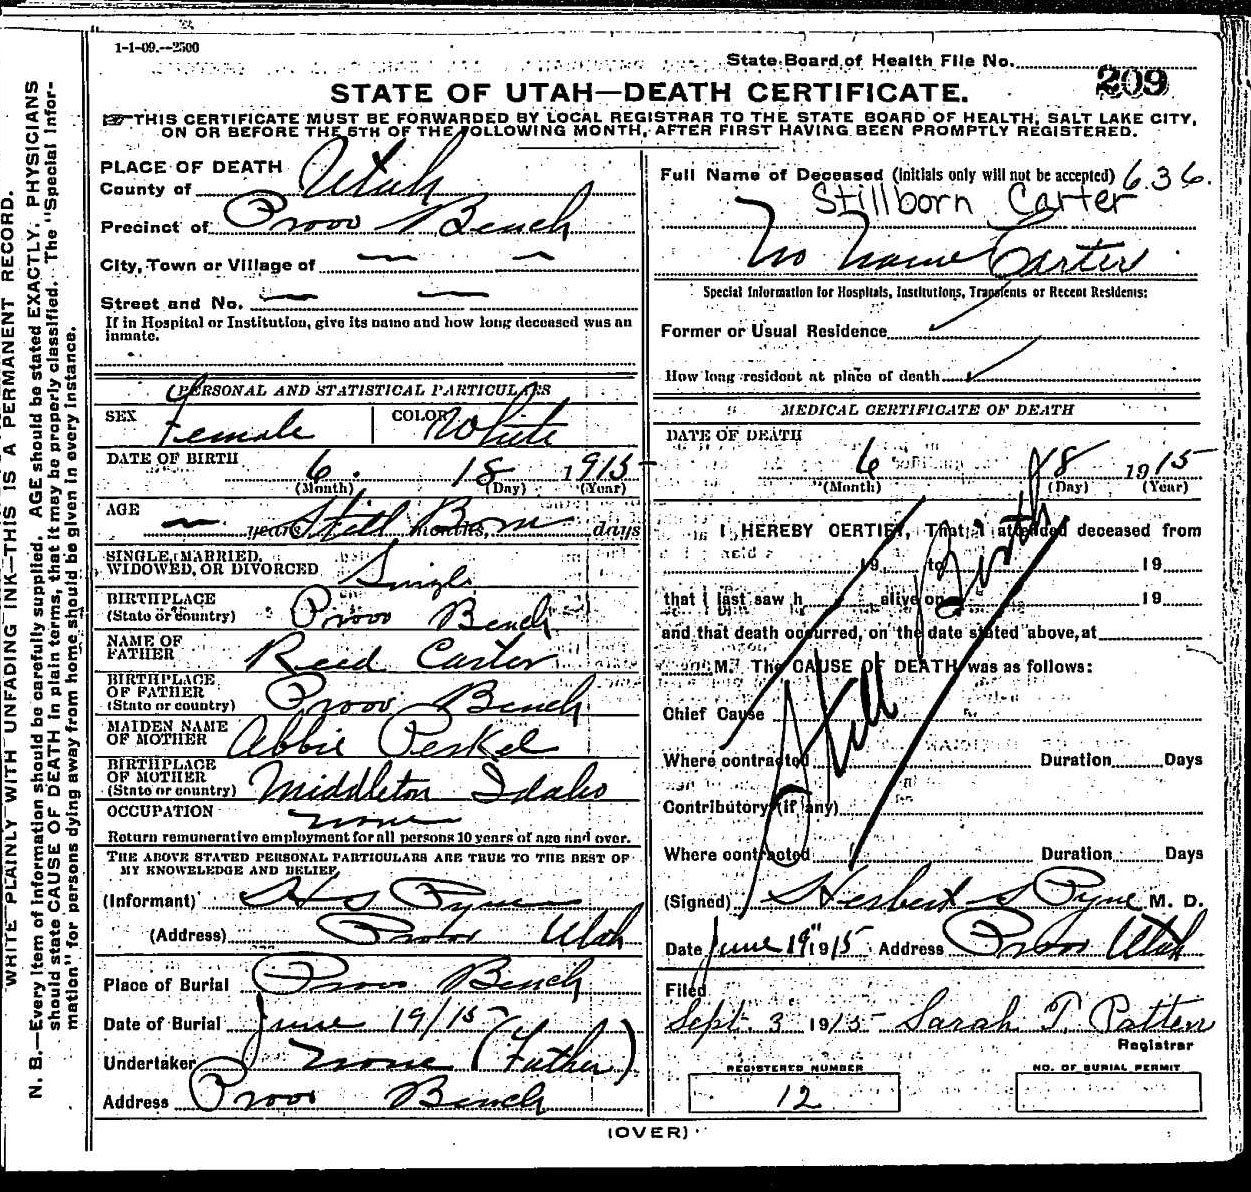 1-1-09.--2500
State Board of Health File No. 209
STATE OF UTAH—DEATH CERTIFICATE.
THIS CERTIFICATE MUST BE FORWARDED BY LOCAL REGISTRAR TO THE STATE BOARD OF HEALTH, SALT LAKE CITY,
ON OR BEFORE THE 5TH OF THE FOLLOWING MONTH, AFTER FIRST HAVING BEEN PROMPTLY REGISTERED.
WRITE PLAINLY WITH UNFADING INK—THIS IS A PERMANENT RECORD.
N. B.—Every item of information should be carefully supplied. AGE should be stated EXACTLY. PHYSICIANS
should state CAUSE OF DEATH in plain terms, that it may be properly classified. The "Special Infor-
mation" for persons dying away from home should be given in every instance.
PLACE OF DEATH
County of Utah
Precinct of Provo Bench
City, Town or Village of —  —
Street and No. —  —
If in Hospital or Institution, give its name and how long deceased was an
inmate.
PERSONAL AND STATISTICAL PARTICULARS
SEX Female COLOR White
DATE OF BIRTH 6. 18 1915
(Month) (Day) (Year)
AGE — years Still Born months, days
SINGLE, MARRIED,
WIDOWED, OR DIVORCED Single
BIRTHPLACE
(State or country) Provo Bench
NAME OF
FATHER Reed Carter
BIRTHPLACE
OF FATHER
(State or country) Provo Bench
MAIDEN NAME
OF MOTHER Abbie Perkel
BIRTHPLACE
OF MOTHER
(State or country) Middleton Idaho
OCCUPATION none
Return remunerative employment for all persons 10 years of age and over.
THE ABOVE STATED PERSONAL PARTICULARS ARE TRUE TO THE BEST OF
MY KNOWELEDGE AND BELIEF
(Informant) H S Pyne
(Address) Provo Utah
Place of Burial Provo Bench
Date of Burial June 19/15
Undertaker none (Father)
Address Provo Bench
Full Name of Deceased (Initials only will not be accepted) 636.
Stillborn Carter
No Name Carter
Special Information for Hospitals, Institutions, Transients or Recent Residents:
Former or Usual Residence
How long resident at place of death
MEDICAL CERTIFICATE OF DEATH
DATE OF DEATH
6 18 1915
(Month) (Day) (Year)
I HEREBY CERTIFY, That I attended deceased from
19 to 19
that I last saw h alive on 19
and that death occurred, on the date stated above, at
M. The CAUSE OF DEATH was as follows:
Still Birth
Chief Cause
Where contracted Duration Days
Contributory (if any)
Where contracted Duration Days
(Signed) Herbert S Pyne M. D.
Date June 19" 1915 Address Provo Utah
Filed
Sept. 3 1915 Sarah T. Patten
Registrar
REGISTERED NUMBER
12
NO. OF BURIAL PERMIT
(OVER)